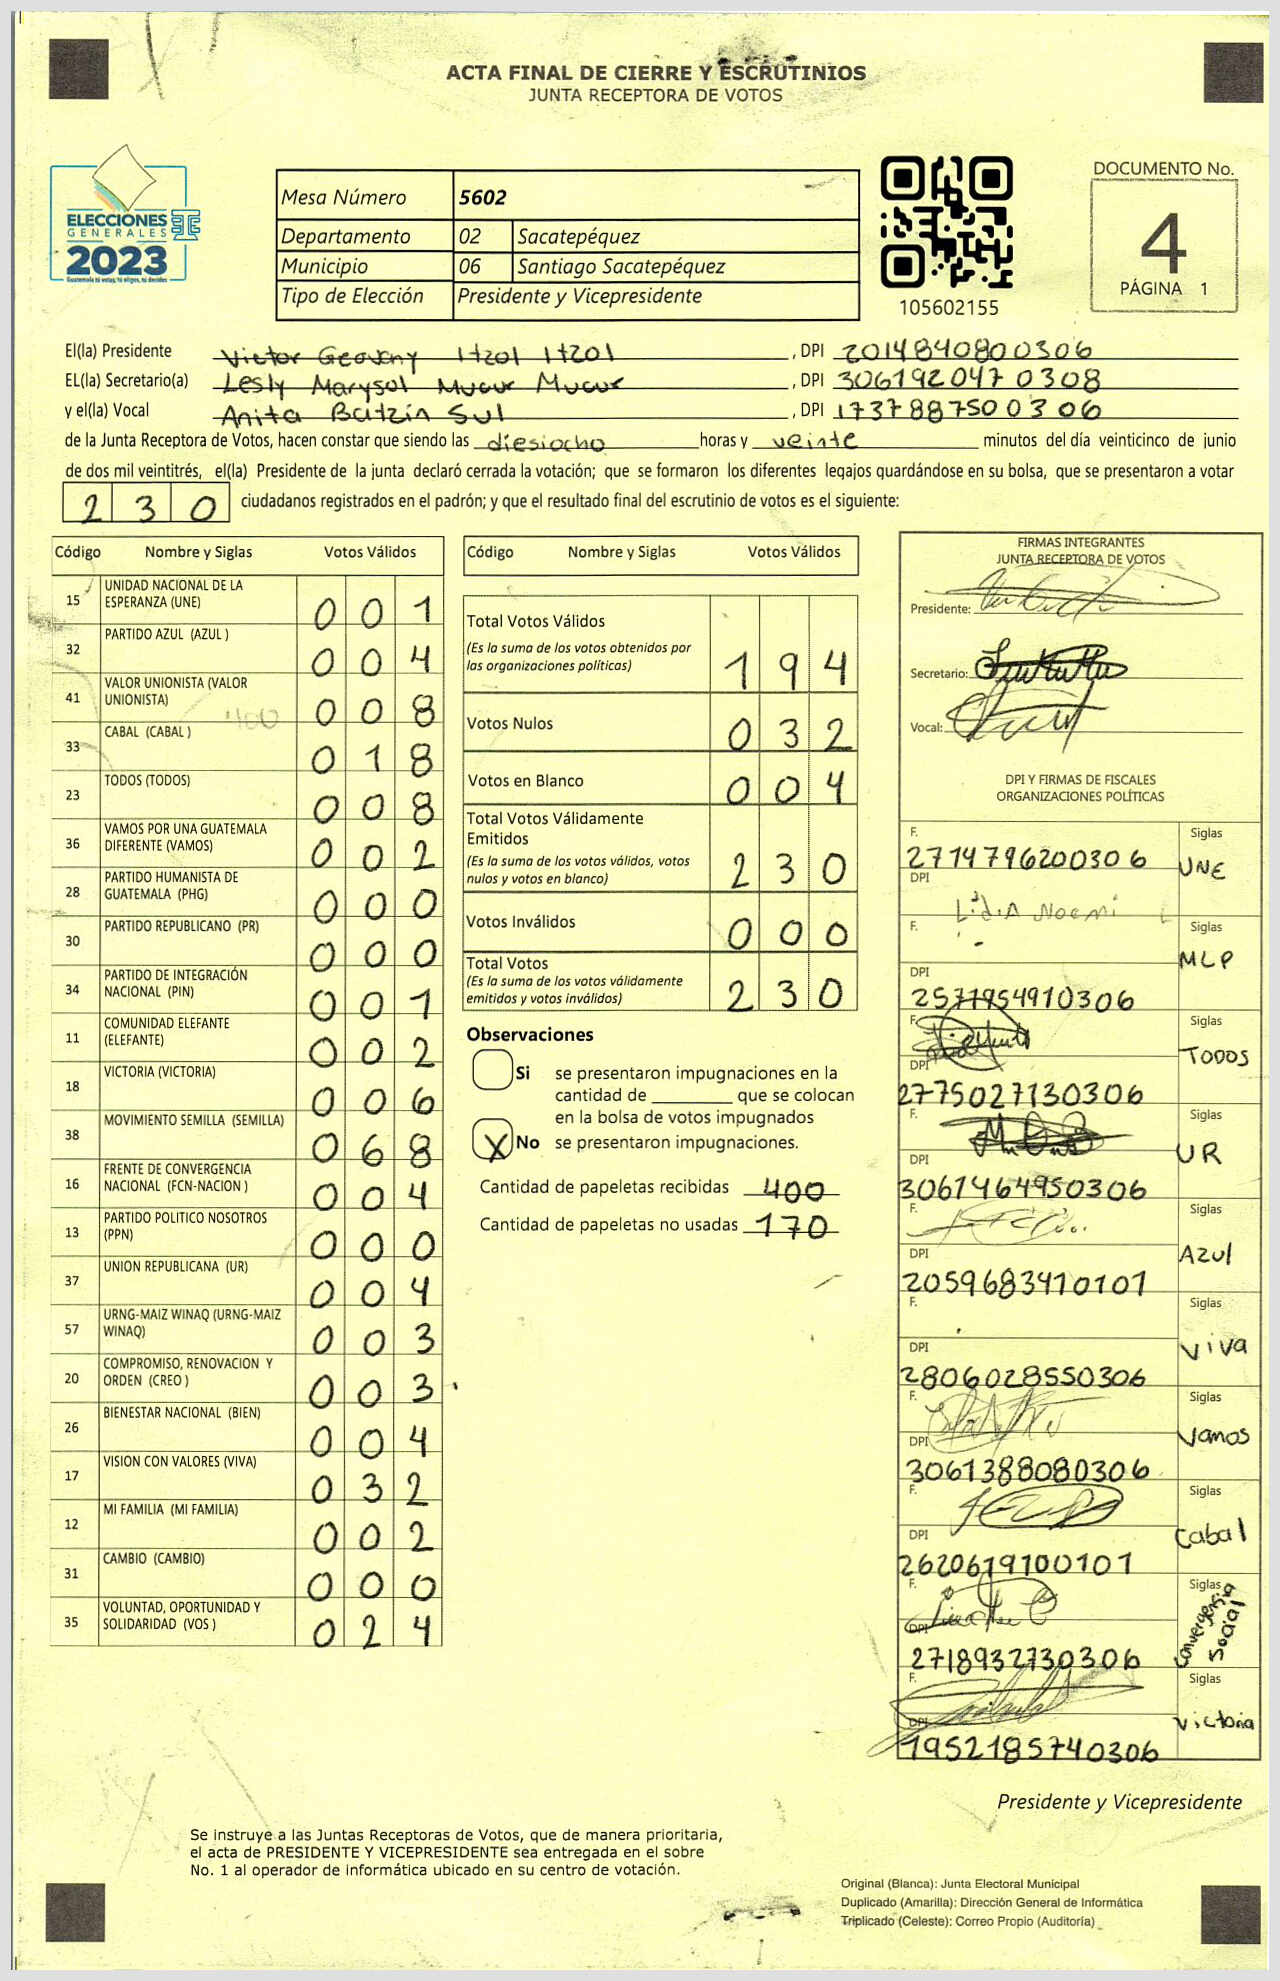 ACTA FINAL DE CIERRE Y ESCRUTINIOS
JUNTA RECEPTORA DE VOTOS
ELECCIONES
GENERALES
2023
Guatemala tú votas, tú eliges, tú decides
Mesa Número 5602
Departamento 02 Sacatepéquez
Municipio 06 Santiago Sacatepéquez
Tipo de Elección Presidente y Vicepresidente
105602155
DOCUMENTO No.
4
PÁGINA 1
El(la) Presidente Victor Geovany Itzol Itzol , DPI 2014840800306
EL(la) Secretario(a) Lesly Marysol Mucur Mucur , DPI 3061920470308
y el(la) Vocal Anita Batzín Sul , DPI 1737887500306
de la Junta Receptora de Votos, hacen constar que siendo las diesiocho horas y veinte minutos del día veinticinco de junio
de dos mil veintitrés, el(la) Presidente de la junta declaró cerrada la votación; que se formaron los diferentes legajos quardándose en su bolsa, que se presentaron a votar
230 ciudadanos registrados en el padrón; y que el resultado final del escrutinio de votos es el siguiente:
Código Nombre y Siglas Votos Válidos
15 UNIDAD NACIONAL DE LA ESPERANZA (UNE) 001
32 PARTIDO AZUL (AZUL ) 004
41 VALOR UNIONISTA (VALOR UNIONISTA) 008
33 CABAL (CABAL ) 018
23 TODOS (TODOS) 008
36 VAMOS POR UNA GUATEMALA DIFERENTE (VAMOS) 002
28 PARTIDO HUMANISTA DE GUATEMALA (PHG) 000
30 PARTIDO REPUBLICANO (PR) 000
34 PARTIDO DE INTEGRACIÓN NACIONAL (PIN) 001
11 COMUNIDAD ELEFANTE (ELEFANTE) 002
18 VICTORIA (VICTORIA) 006
38 MOVIMIENTO SEMILLA (SEMILLA) 068
16 FRENTE DE CONVERGENCIA NACIONAL (FCN-NACION ) 004
13 PARTIDO POLITICO NOSOTROS (PPN) 000
37 UNION REPUBLICANA (UR) 004
57 URNG-MAIZ WINAQ (URNG-MAIZ WINAQ) 003
20 COMPROMISO, RENOVACION Y ORDEN (CREO ) 003
26 BIENESTAR NACIONAL (BIEN) 004
17 VISION CON VALORES (VIVA) 032
12 MI FAMILIA (MI FAMILIA) 002
31 CAMBIO (CAMBIO) 000
35 VOLUNTAD, OPORTUNIDAD Y SOLIDARIDAD (VOS ) 024
Código Nombre y Siglas Votos Válidos
Total Votos Válidos 194
(Es la suma de los votos obtenidos por
las organizaciones políticas)
Votos Nulos 032
Votos en Blanco 004
Total Votos Válidamente
Emitidos 230
(Es la suma de los votos válidos, votos
nulos y votos en blanco)
Votos Inválidos 000
Total Votos 230
(Es la suma de los votos válidamente
emitidos y votos inválidos)
Observaciones
Si se presentaron impugnaciones en la
cantidad de ________ que se colocan
en la bolsa de votos impugnados
X No se presentaron impugnaciones.
Cantidad de papeletas recibidas 400
Cantidad de papeletas no usadas 170
FIRMAS INTEGRANTES
JUNTA RECEPTORA DE VOTOS
Presidente:
Secretario:
Vocal:
DPI Y FIRMAS DE FISCALES
ORGANIZACIONES POLÍTICAS
F. Siglas
2714796200306 UNE
DPI
Lidia Noemi
F. Siglas
MLP
DPI
2571954910306
F. Siglas
TODOS
DPI
2775027130306
F. Siglas
UR
DPI
3061464950306
F. Siglas
Azul
DPI
2059683410101
F. Siglas
Viva
DPI
2806028550306
F. Siglas
Vamos
DPI
3061388080306
F. Siglas
Cabal
DPI
2620619100101
F. Siglas
Convergencia Social
DPI
2718932730306
F. Siglas
Victoria
DPI
1952185740306
Presidente y Vicepresidente
Se instruye a las Juntas Receptoras de Votos, que de manera prioritaria,
el acta de PRESIDENTE Y VICEPRESIDENTE sea entregada en el sobre
No. 1 al operador de informática ubicado en su centro de votación.
Original (Blanca): Junta Electoral Municipal
Duplicado (Amarilla): Dirección General de Informática
Triplicado (Celeste): Correo Propio (Auditoría)